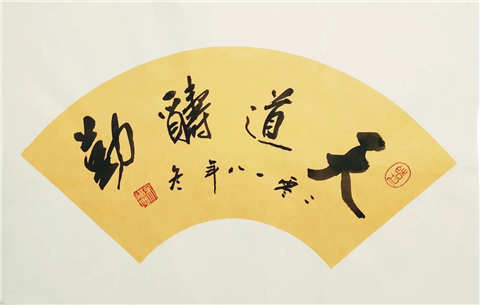 天道醻勤
二零一八年冬